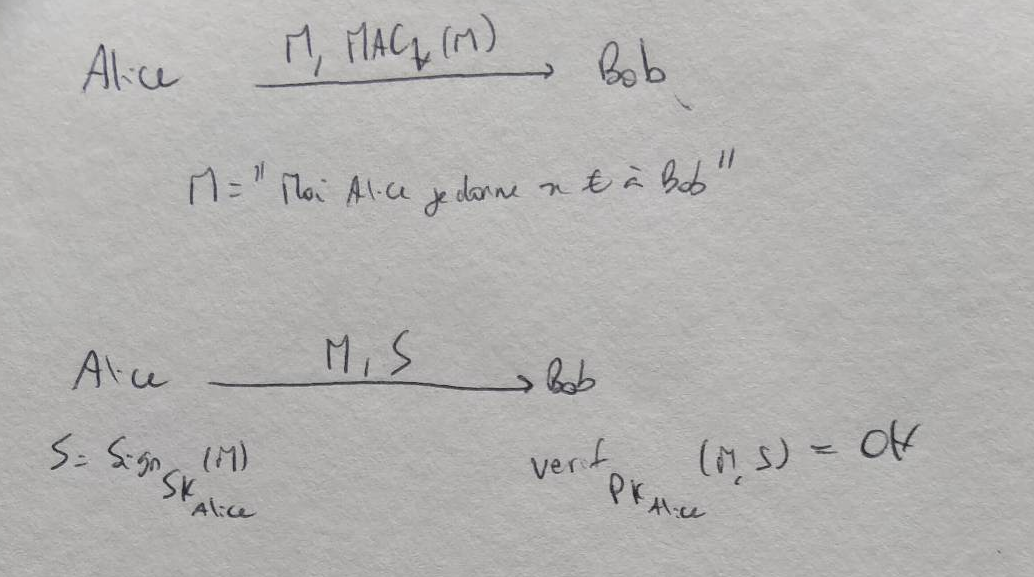 Alice M, MAC_k (M) Bob
M = " Moi Alice je donne n € à Bob "
Alice M, S Bob
S = Sign_SK_Alice (M) verif_PK_Alice (M, S) = OK